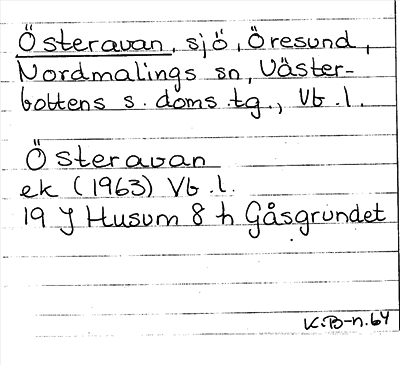 Österavan, sjö, Öresund,
Nordmalings sn, Väster-
bottens s. doms.tg., Vb.l.
Österavan
ek (1963) Vb.l.
19 J Husum 8 h Gåsgrundet
K.B-n.64